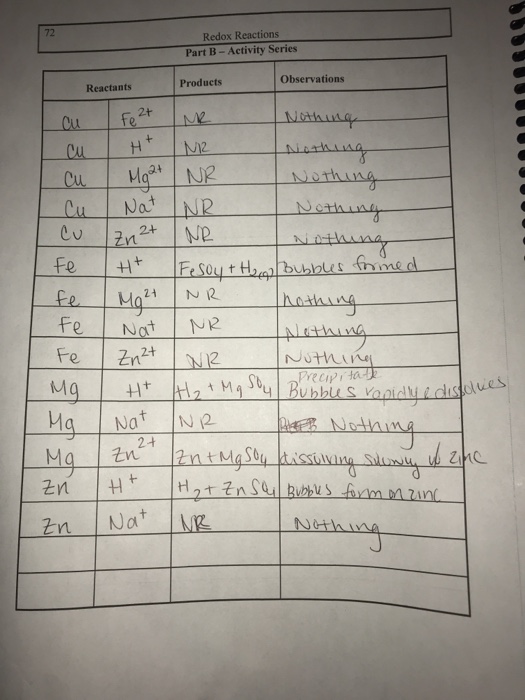 72
Redox Reactions
Part B – Activity Series
Reactants Products Observations
Cu Fe2+ NR Nothing
Cu H+ NR Nothing
Cu Mg2+ NR Nothing
Cu Na+ NR Nothing
Cu Zn2+ NR Nothing
Fe H+ FeSO4 + H2(g) Bubbles formed
Fe Mg2+ NR nothing
Fe Na+ NR Nothing
Fe Zn2+ NR Nothing
Precipitate
Mg H+ H2 + MgSO4 Bubbles rapidly & dissolves
Mg Na+ NR Nothing
Mg Zn2+ Zn + MgSO4 dissolving zinc
Zn H+ H2 + ZnSO4 Bubbles form on zinc
Zn Na+ NR Nothing